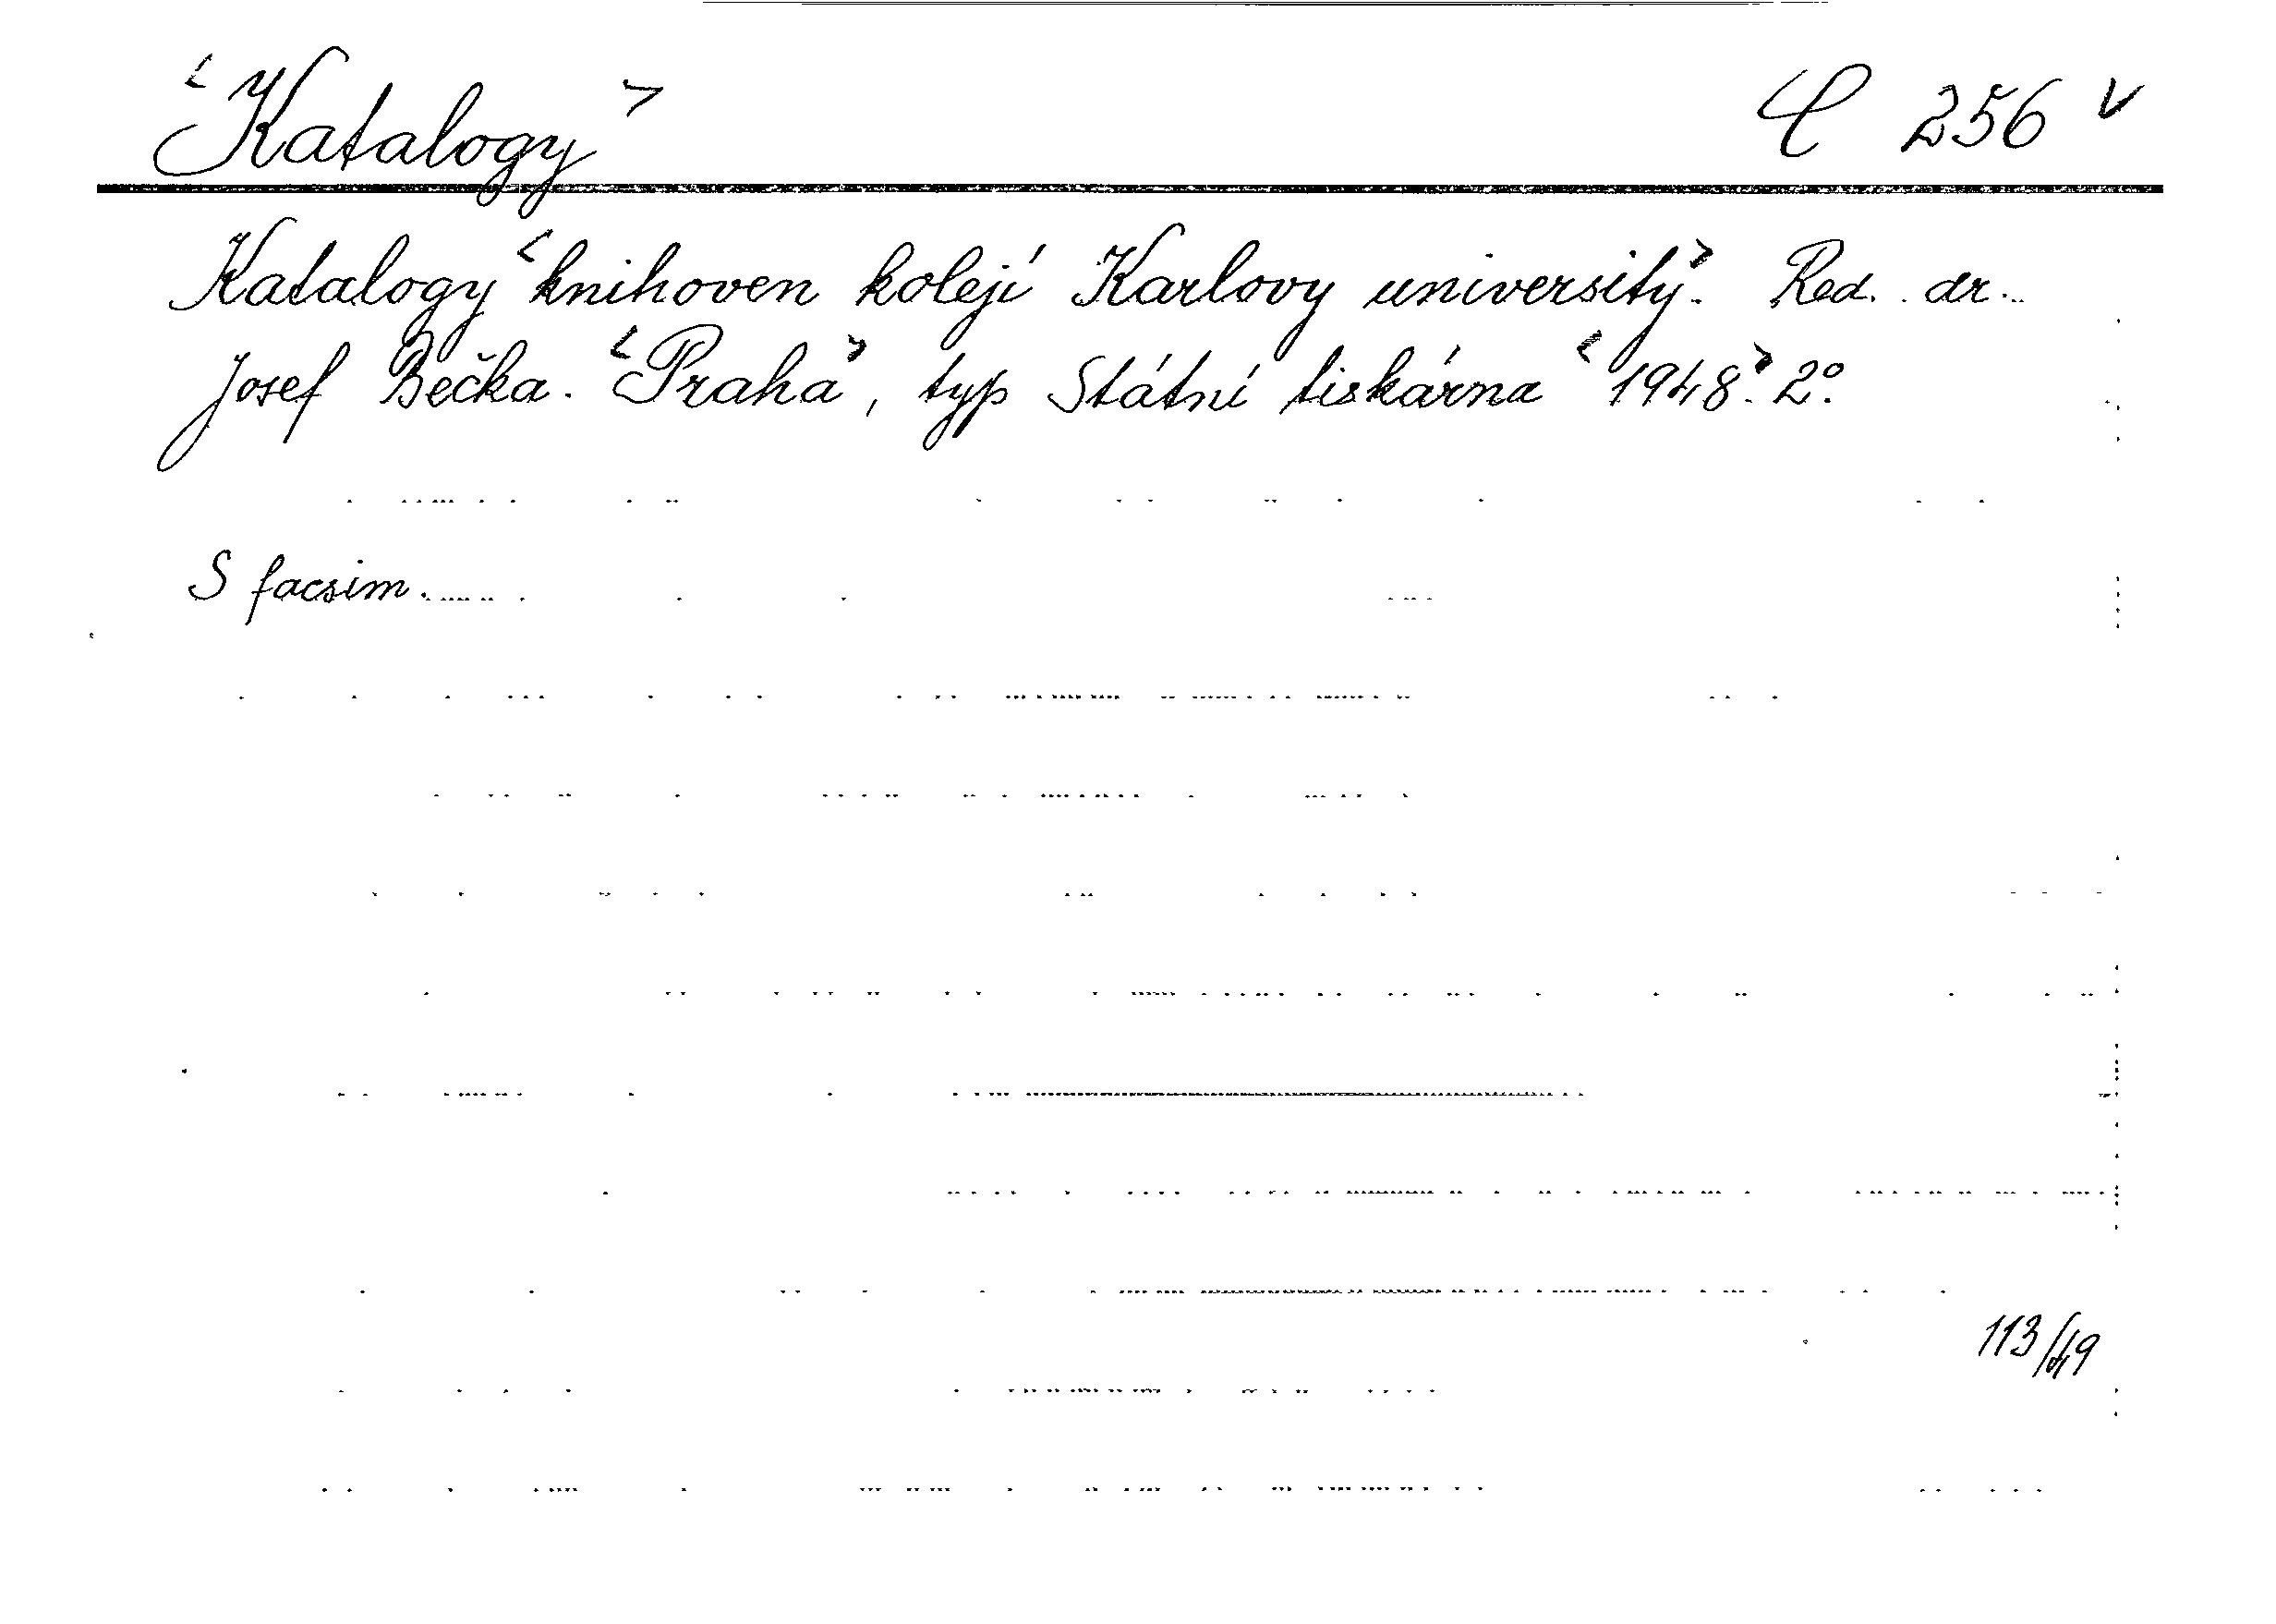 <Katalogy> C 256 v
Katalogy <knihoven kolejí Karlovy university>. Red. dr.
Josef Bečka. <Praha>, typ Státní tiskárna <1948>. 2°.
S facsim.
113/49